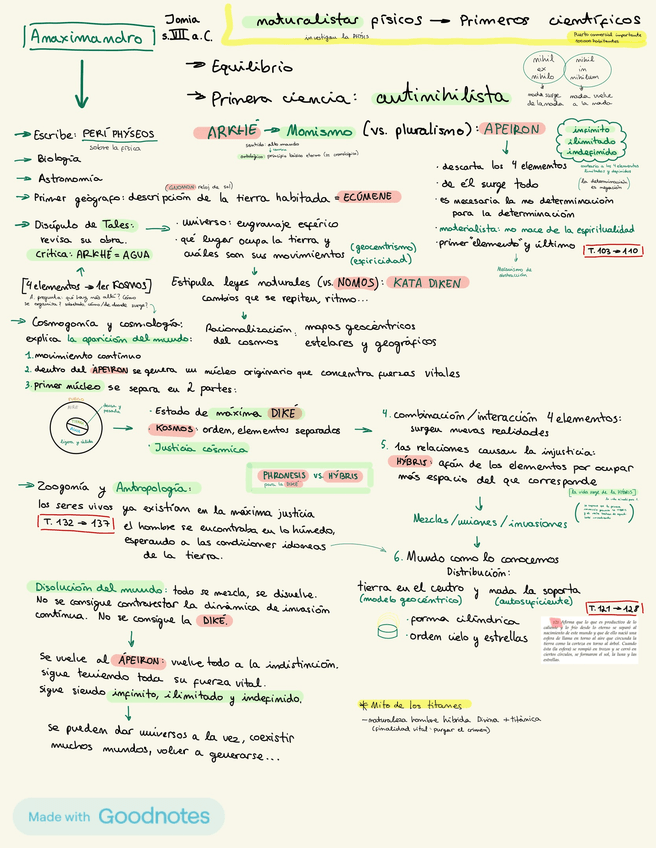 Anaximandro
Jonia
s.VII a.C.
naturalistas físicos → Primeros científicos
investigan la PHÝSIS
Puerto comercial importante
→ Equilibrio
→ Primera ciencia: antinihilista
nihil ex nihilo
nihil in nihilum
nada surge de la nada
nada vuelve a la nada
→ Escribe: PERÍ PHÝSEOS
sobre la física
→ Biología
→ Astronomía
ARKHÉ → Monismo (vs. pluralismo): APEIRON
infinito
ilimitado
indefinido
· descarta los 4 elementos
· de él surge todo
(la determinación es negación)
· es necesaria la no determinación
para la determinación
· materialista: no nace de la espiritualidad
· primer "elemento" y último
T. 103 → 110
→ Primer geógrafo: descripción de la tierra habitada = ECÚMENE
(GNOMON reloj de sol)
→ Discípulo de Tales:
revisa su obra.
crítica: ARKHÉ = AGUA
· universo: engranaje esférico
· qué lugar ocupa la tierra y
cuáles son sus movimientos
(geocentrismo)
(esfericidad)
[4 elementos → 1er KOSMOS]
Estipula leyes naturales (vs. NOMOS): KATA DIKEN
cambios que se repiten, ritmo...
→ Cosmogonía y cosmología:
explica la aparición del mundo:
Racionalización del cosmos
: mapas geocéntricos
estelares y geográficos
1. movimiento continuo
2. dentro del ÁPEIRON se genera un núcleo originario que concentra fuerzas vitales
3. primer núcleo se separa en 2 partes:
· Estado de máxima DIKÉ
· KOSMOS: orden, elementos separados
· Justicia cósmica
4. combinación/interacción 4 elementos:
surgen nuevas realidades
5. las relaciones causan la injusticia:
HÝBRIS: afán de los elementos por ocupar
más espacio del que corresponde
PHRONESIS vs. HÝBRIS
la vida surge de la HÝBRIS
Mezclas/uniones/invasiones
→ Zoogonía y Antropología:
los seres vivos ya existían en la máxima justicia
T. 132 → 137
el hombre se encontraba en lo húmedo,
esperando a las condiciones idóneas
de la tierra.
6. Mundo como lo conocemos
Distribución:
tierra en el centro y nada la soporta
(modelo geocéntrico) (autosuficiente)
T. 121 → 128
· forma cilíndrica
· orden cielo y estrellas
Disolución del mundo: todo se mezcla, se disuelve.
No se consigue contrarrestar la dinámica de invasión
continua. No se consigue la DIKÉ.
Se vuelve al ÁPEIRON: vuelve todo a la indistinción.
sigue teniendo toda su fuerza vital.
Sigue siendo infinito, ilimitado y indefinido.
Se pueden dar universos a la vez, coexistir
muchos mundos, volver a generarse...
* Mito de los titanes
– naturaleza hombre híbrida Divina + titánica
(finalidad vital: purgar el crimen)
Made with Goodnotes